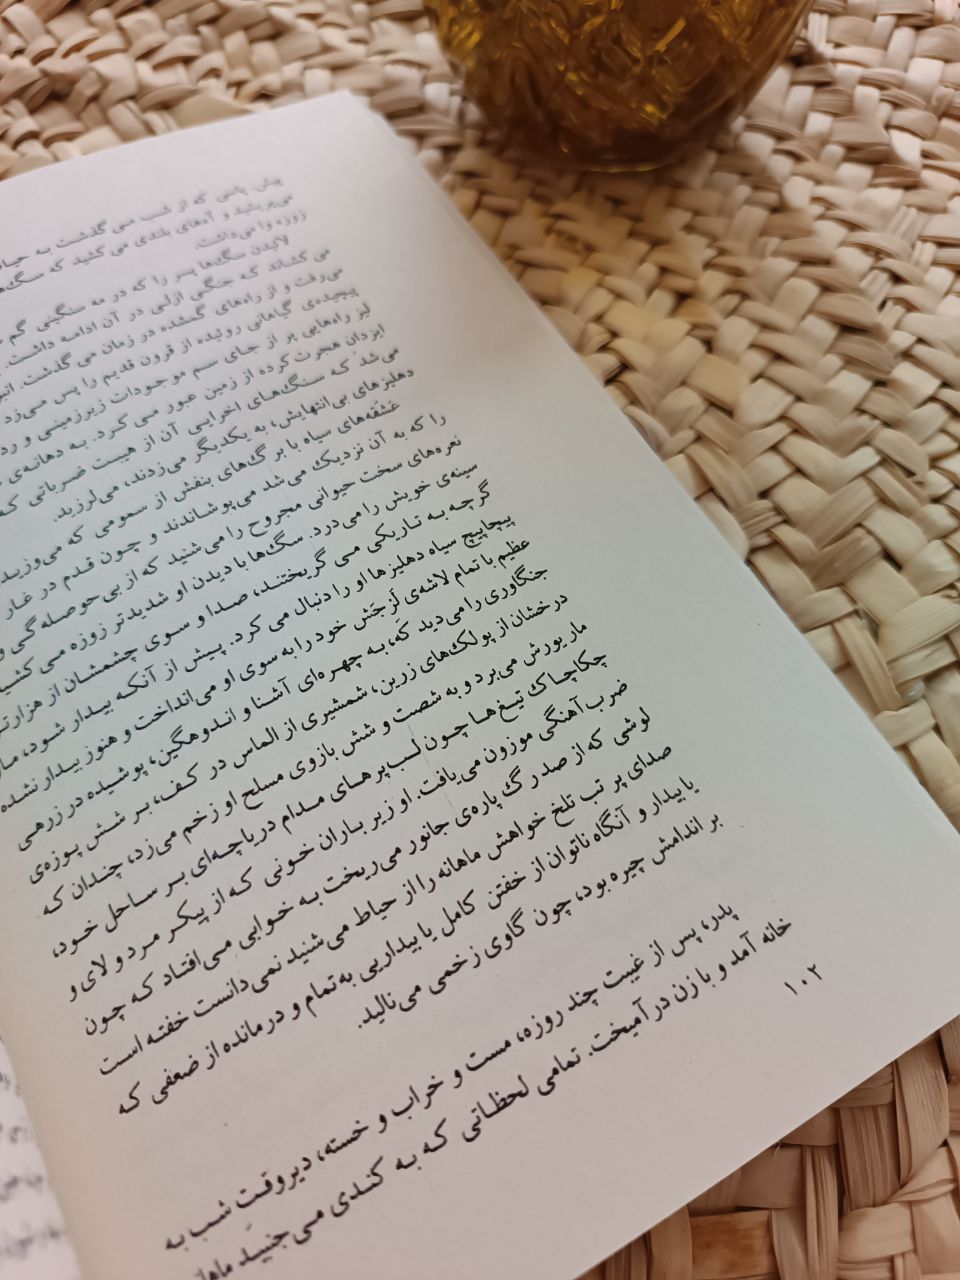 پیش. پاسی که از شب می گذشت به حیاط
می‌پریشید و آه‌های بلندی می کشید که سگ‌ها
زوزه وا می‌داشت.
لاییدن سگ‌ها پسر را که در مه سنگینی گم
می کشاند که جنگی ازلی در آن ادامه داشت.
می‌رفت و از راه‌های گمشده در زمان می گذشت.
پیچیده‌ی گیاهانی روئیده از قرون قدیم را پس می‌زد
لیز راه‌هایی پر از جای سم موجودات زیرزمینی و رد
ایزدان هجرت کرده از زمین عبور می کرد. به دهانه‌ی
می‌شد که سنگ‌های اخرایی آن از هیبت ضرباتی که
دهلیزهای بی‌انتهایش، به یکدیگر می‌زدند، می‌لرزید.
عَشَقه‌های سیاه با برگ‌های بنفش از سمومی که می‌وزید
را که به آن نزدیک می‌شد می‌پوشاندند و چون قدم در غار
نعره‌های سخت حیوانی مجروح را می‌شنید که از بی‌حوصله‌گی و
سینه‌ی خویش را می‌درد. سگ‌ها با دیدن او شدیدتر زوزه می کشیدند
گرچه به تاریکی می گریختند، صدا و سوی چشمشان از هزارتوی
پیچاپیچ سیاه دهلیزها او را دنبال می کرد. پیش از آنکه بیدار شود، مار
عظیم با تمام لاشه‌ی لَزجَش خود را به سوی او می‌انداخت و هنوز بیدار نشده
جنگاوری را می‌دید که، به چهره‌ای آشنا و اندوهگین، پوشیده در زرهی
درخشان از پولک‌های زرین، شمشیری از الماس در کف، بر شش پوزه‌ی
مار یورش می‌برد و به شصت و شش بازوی مسلح او زخم می‌زد، چندان که
چکاچاک تیغ‌ها چون لب‌پرهای مدام دریاچه‌ای بر ساحل خود،
ضرب‌آهنگی موزون می‌یافت. او زیر باران خونی که از پیکر مرد و لای و
لوشی که از صد رگ پاره‌ی جانور می‌ریخت به خوابی می‌افتاد که چون
صدای پر تب تلخ خواهش ماهانه را از حیاط می‌شنید نمی‌دانست خفته است
یا بیدار و آنگاه ناتوان از خفتن کامل یا بیداریی به تمام و درمانده از ضعفی که
بر اندامش چیره بود، چون گاوی زخمی می‌نالید.
پدر، پس از غیبت چند روزه، مست و خراب و خسته، دیروقتِ شب به
خانه آمد و با زن در آمیخت. تمامی لحظاتی که به کندی می‌جنبید
۱۰۲